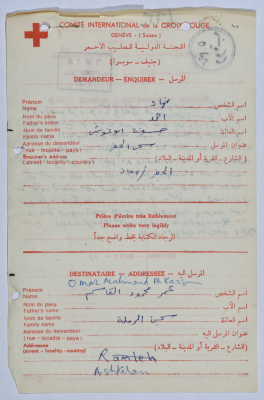 COMITÉ INTERNATIONAL de la CROIX-ROUGE
GENÈVE - (Suisse)
اللجنة الدولية للصليب الاحمر
(جنيف - سويسرا)
DEMANDEUR — ENQUIRER — المرسل
Prénom
Name
اسم الشخص
Nom du père
Father's name
اسم الأب
احمد
Nom de famille
Family name
العائلة
Adresse du demandeur
(rue - localité - pays)
Enquirer's Address
(street - locality - country)
عنوان المرسل
(الشارع - القرية أو المدينة - البلاد)
Prière d'écrire très lisiblement
Please write very legibly
الرجاء الكتابة بخط واضح جداً
DESTINATAIRE — ADDRESSEE — المرسل اليه
Omar Mahmoud Al Kassem
Prénom
Name
اسم الشخص
عمر محمود القاسم
Nom du père
Father's name
اسم الأب
Nom de famille
Family name
العائلة
سجن الرملة
Adresse du demandeur
(rue - localité - pays)
Addressee
(street - locality - country)
عنوان المرسل اليه
(الشارع - القرية أو المدينة - البلاد)
Ramleh
Ashkelon